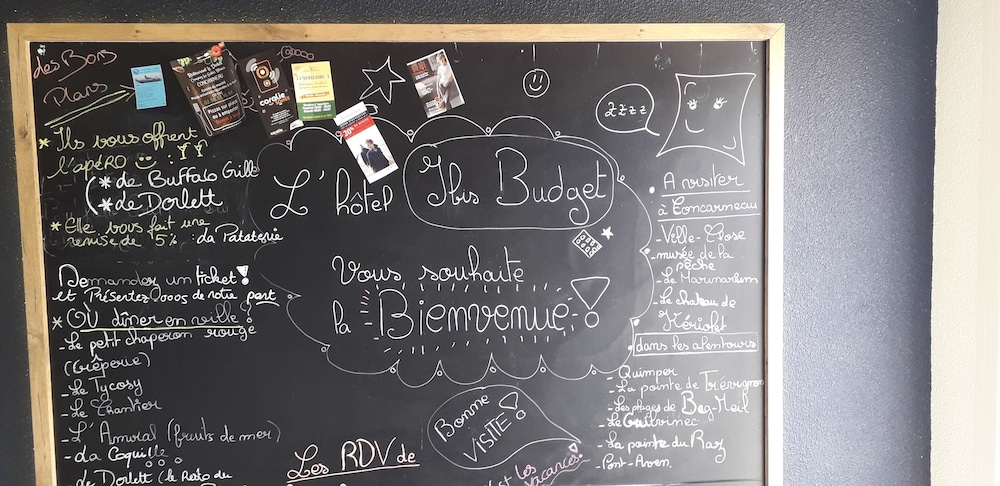 des Bons
Plans
* Ils vous offrent
l'apéRO
(* de Buffalo Grill
(* de Dorlett
* Elle vous fait une
remise de 5%. La Pataterie
Demandez un ticket!
et Présentez de notre part
* OÙ dîner en ville?
- Le petit chaperon rouge
(Crêperie)
- Le Tycosy
- Le Chantier
- L'Amiral (fruits de mer)
- La Coquille
de Dorlett (le Resto du
L'hôtel Ibis Budget
Vous souhaite
la Bienvenue!
Bonne
VISITE!
Les RDV de
les
vacances!
zzzz
A visiter
à Concarneau
- Ville-Close
- musée de la
pêche
- Le Marinarium
- Le chateau de
Kériolet
dans les alentours
- Quimper
- La pointe de Trévignon
- Les plages de Beg-Meil
- Le Guilvinec
- La pointe du Raz
- Pont-Aven
coralie
20%